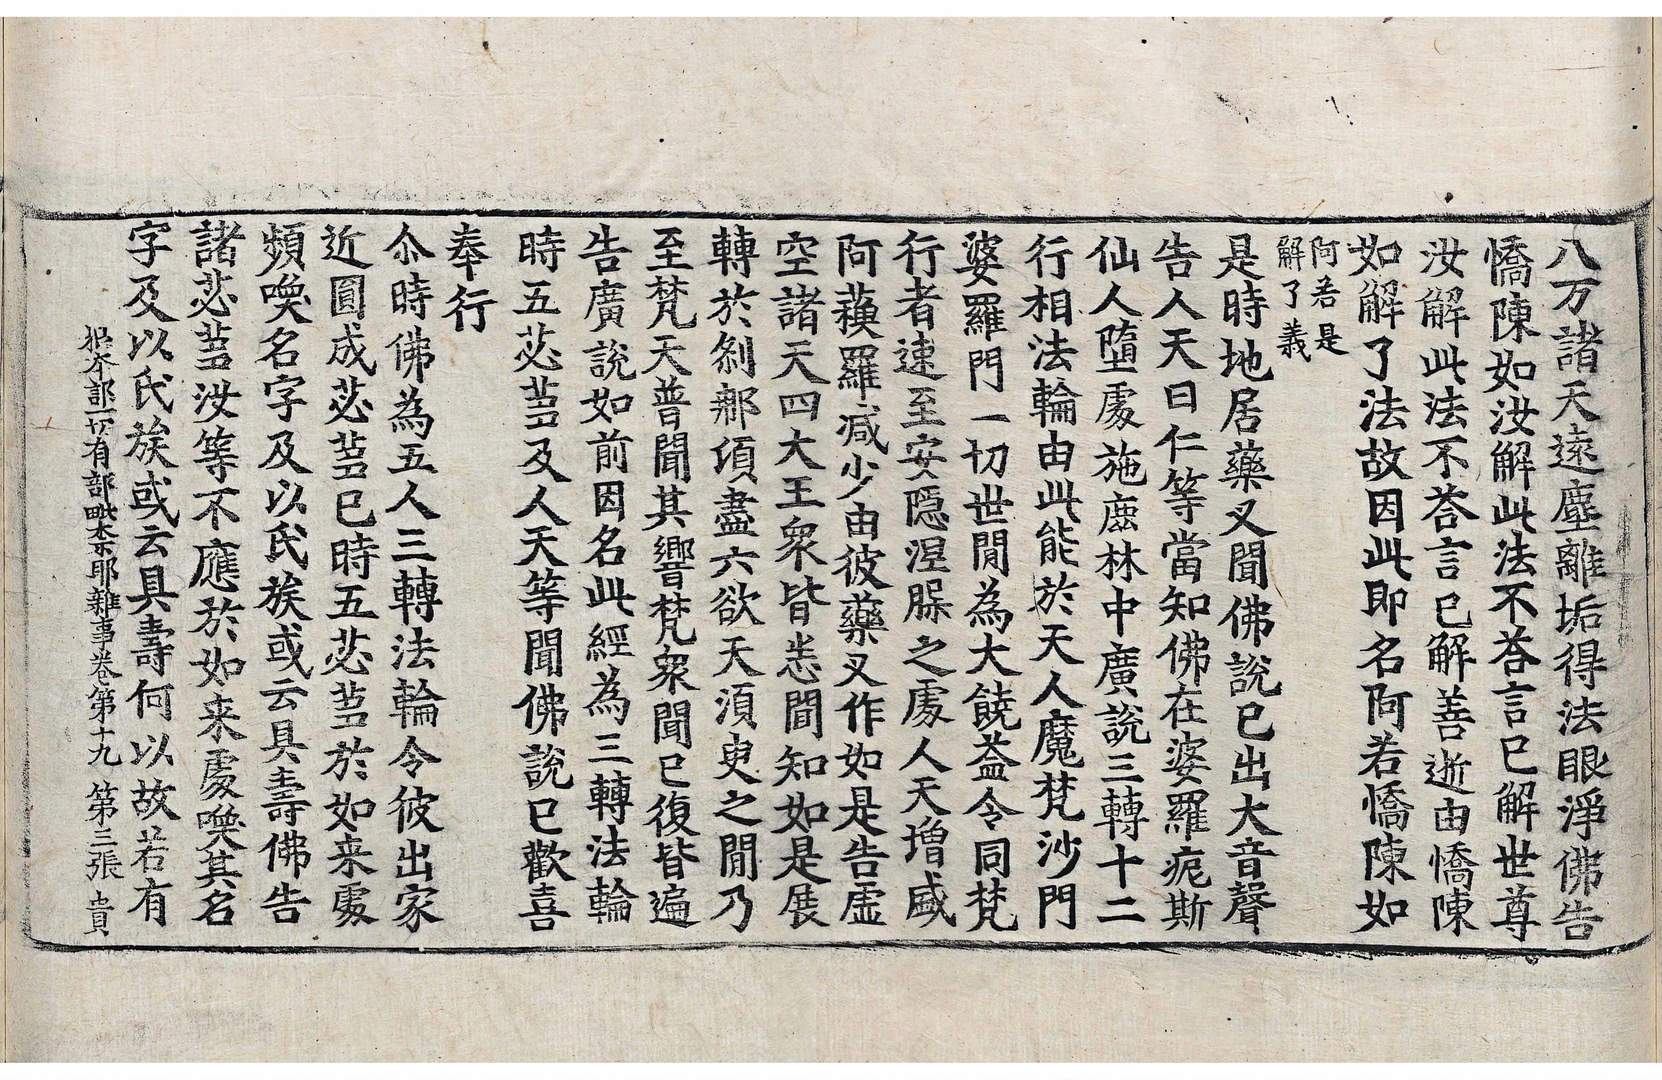 八万諸天遠塵離垢得法眼淨佛告
憍陳如汝解此法不荅言已解世尊
汝解此法不荅言已解善逝由憍陳
如解了法故因此即名阿若憍陳如
阿若是
解了義
是時地居藥叉聞佛說已出大音聲
告人天曰仁等當知佛在婆羅痆斯
仙人墮處施鹿林中廣說三轉十二
行相法輪由此能於天人魔梵沙門
婆羅門一切世間為大饒益令同梵
行者速至安隱涅槃之處人天增盛
阿蘓羅减少由彼藥叉作如是告虛
空諸天四大王衆皆悉聞知如是展
轉於剎那頃盡六欲天須臾之間乃
至梵天普聞其響梵衆聞已復皆遍
告廣說如前因名此經為三轉法輪
時五苾芻及人天等聞佛說已歡喜
奉行
尒時佛為五人三轉法輪令彼出家
近圓成苾芻已時五苾芻於如来處
頻喚名字及以氏族或云具壽佛告
諸苾芻汝等不應於如来處喚其名
字及以氏族或云具壽何以故若有
根本說一切有部毗柰耶雜事卷第十九 第三張 貴